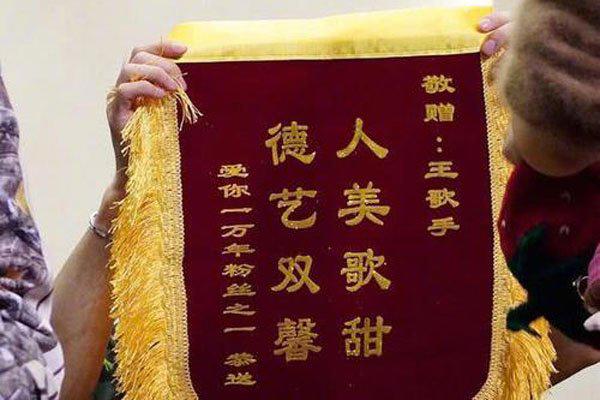 敬赠：王歌手
人美歌甜
德艺双馨
爱你一万年粉丝之一 恭送